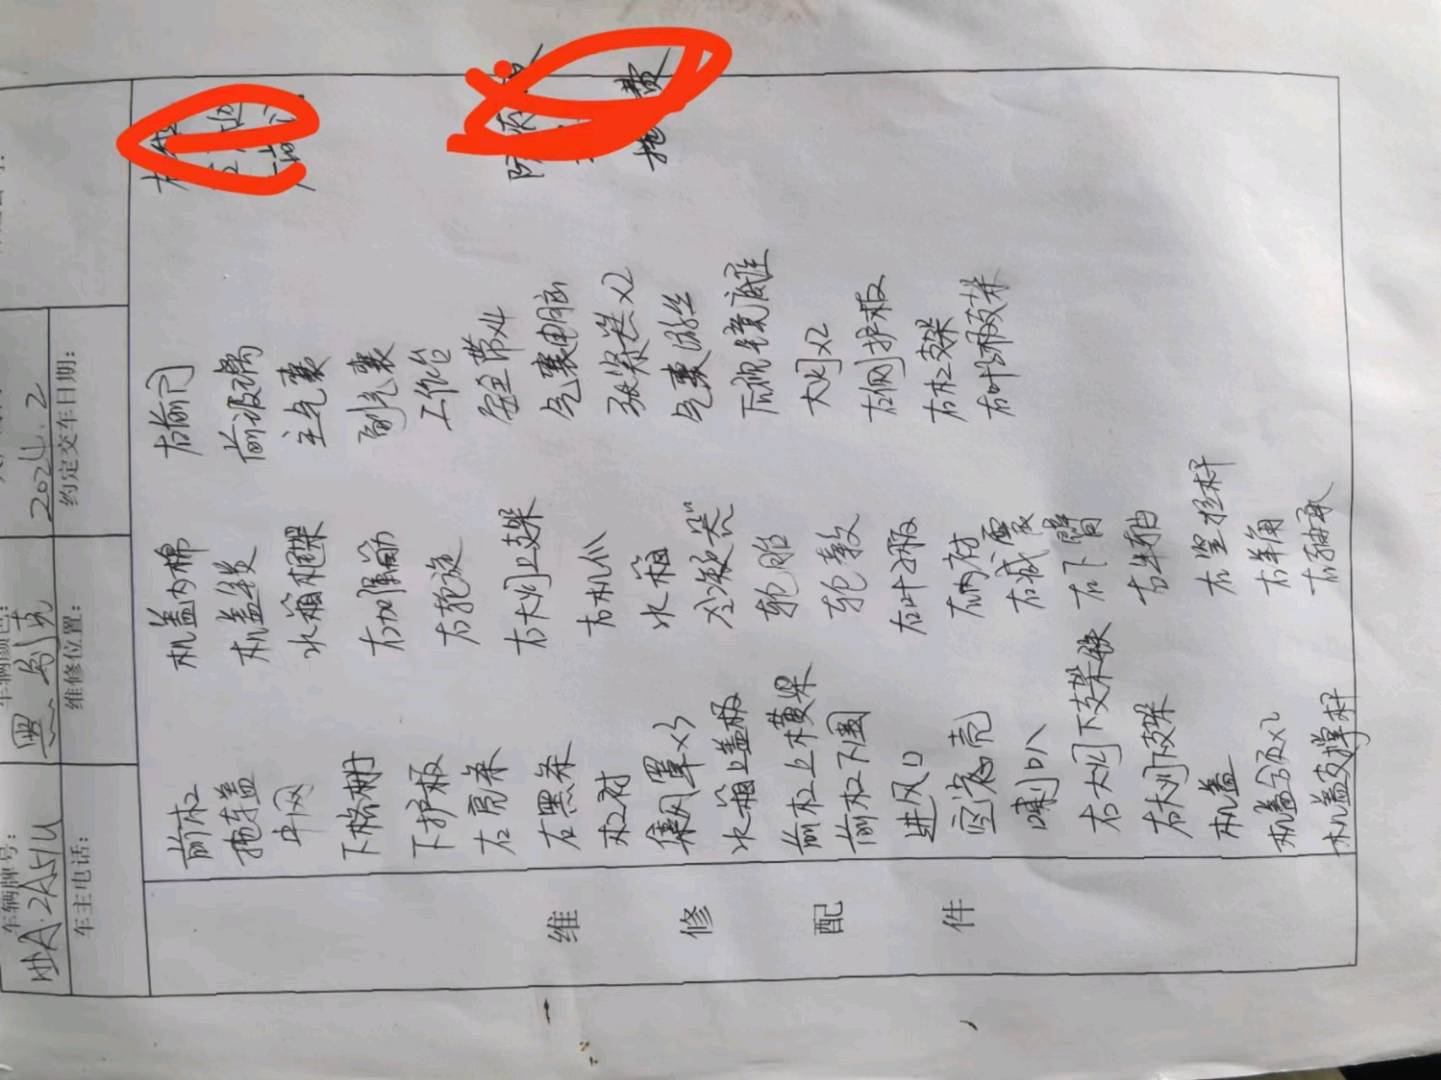 车辆牌号:
车辆颜色:
2024.2
车主电话:
维修位置:
约定交车日期:
维修配件
前杠
拖车盖
中网
下格栅
下护板
右亮条
右黑条
杠衬
集风罩x3
水箱上盖板
前杠上横梁
前杠下围
进风口
空滤壳
喇叭
右大灯下支架铁
右大灯支架
机盖
机盖合页x2
机盖支撑杆
机盖内棉
机盖锁
水箱框架
右加强筋
右轮旋
右大灯上支架
右机爪
水箱
冷凝器
轮胎
轮毂
右叶子板
右内衬
右减震
右下臂
右半轴
右竖拉杆
右羊角
右轴承
右前门
前玻璃
主气囊
副气囊
工作台
安全带x4
气囊电脑
张紧器x2
气囊游丝
后视镜底座
大灯x2
左侧护板
右杠支架
右叶子板支架
费